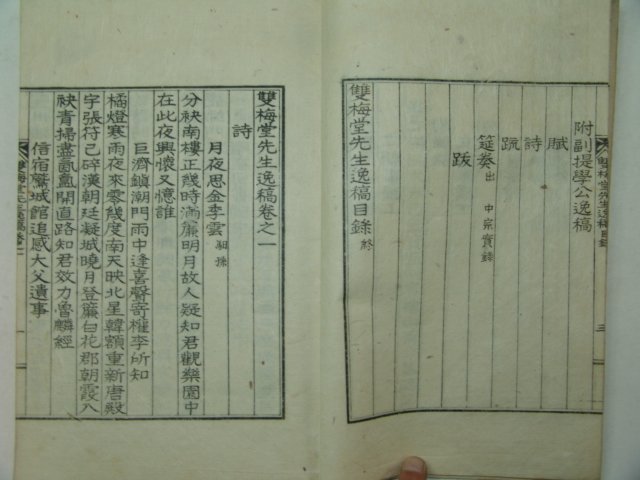 附副提學公逸稿
賦
詩
疏
筵奏 出中宗實錄
跋
雙梅堂先生逸稿目錄終
雙梅堂先生逸稿卷之一
詩
月夜思金季雲 馹孫
分袂南樓正幾時滿簾明月故人疑知君觀樂園中
在此夜興懷又憶誰
巨濟鎭潮門雨中逢喜聲奇權李所知
橘燈寒雨夜來零幾度南天映北星韓額重新唐殿
字張符已碎漢朝廷凝城曉月登簾白花郡朝霞入
袂青掃盡氤氳開直路知君效力魯麟經
信宿鷲城館追感大父遺事